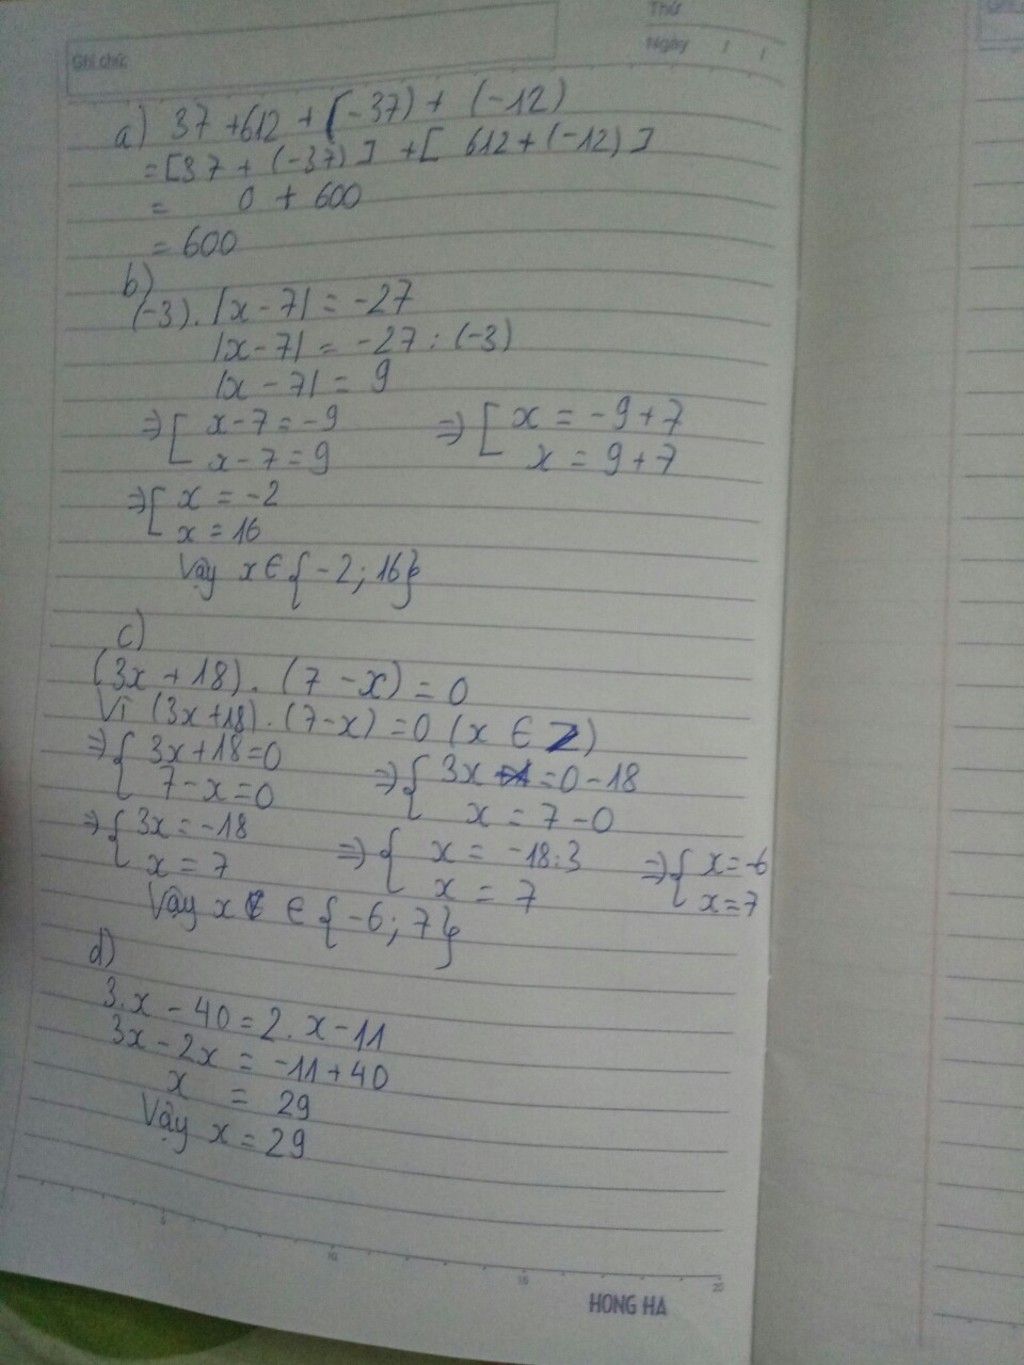 Thứ
Ghi chú:
Ngày / /
a) 37 + 612 + (-37) + (-12)
= [37 + (-37)] + [ 612 + (-12) ]
= 0 + 600
= 600
b)
(-3). |x - 7| = -27
|x - 7| = -27 : (-3)
|x - 7| = 9
⇒ [ x - 7 = -9 ⇒ [ x = -9 + 7
x - 7 = 9 x = 9 + 7
⇒ [ x = -2
x = 16
Vậy x ∈ { -2 ; 16 }
c)
(3x + 18). (7 - x) = 0
Vì (3x + 18). (7 - x) = 0 (x ∈ Z)
⇒ { 3x + 18 = 0 ⇒ { 3x = 0 - 18
7 - x = 0 x = 7 - 0
⇒ { 3x = -18 ⇒ { x = -18 : 3 ⇒ { x = -6
x = 7 x = 7 x = 7
Vậy x ∈ { -6 ; 7 }
d)
3. x - 40 = 2. x - 11
3x - 2x = -11 + 40
x = 29
Vậy x = 29
5 10 15 20
HONG HA